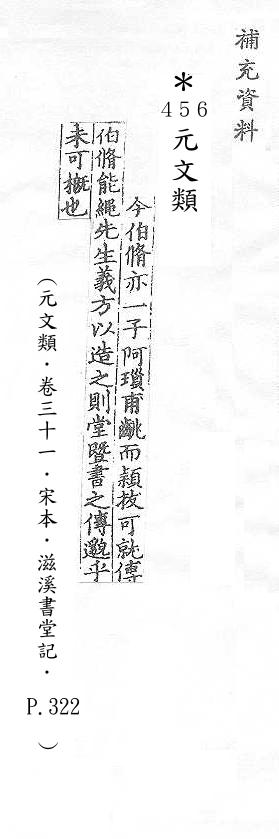 補充資料
＊
456
元文類
今伯脩亦一子阿瑣甫齠而穎拔可就傅
伯脩能繩先生義方以造之則堂曁書之傳邈乎
未可概也
（元文類・卷三十一・宋本・滋溪書堂記・P.322）